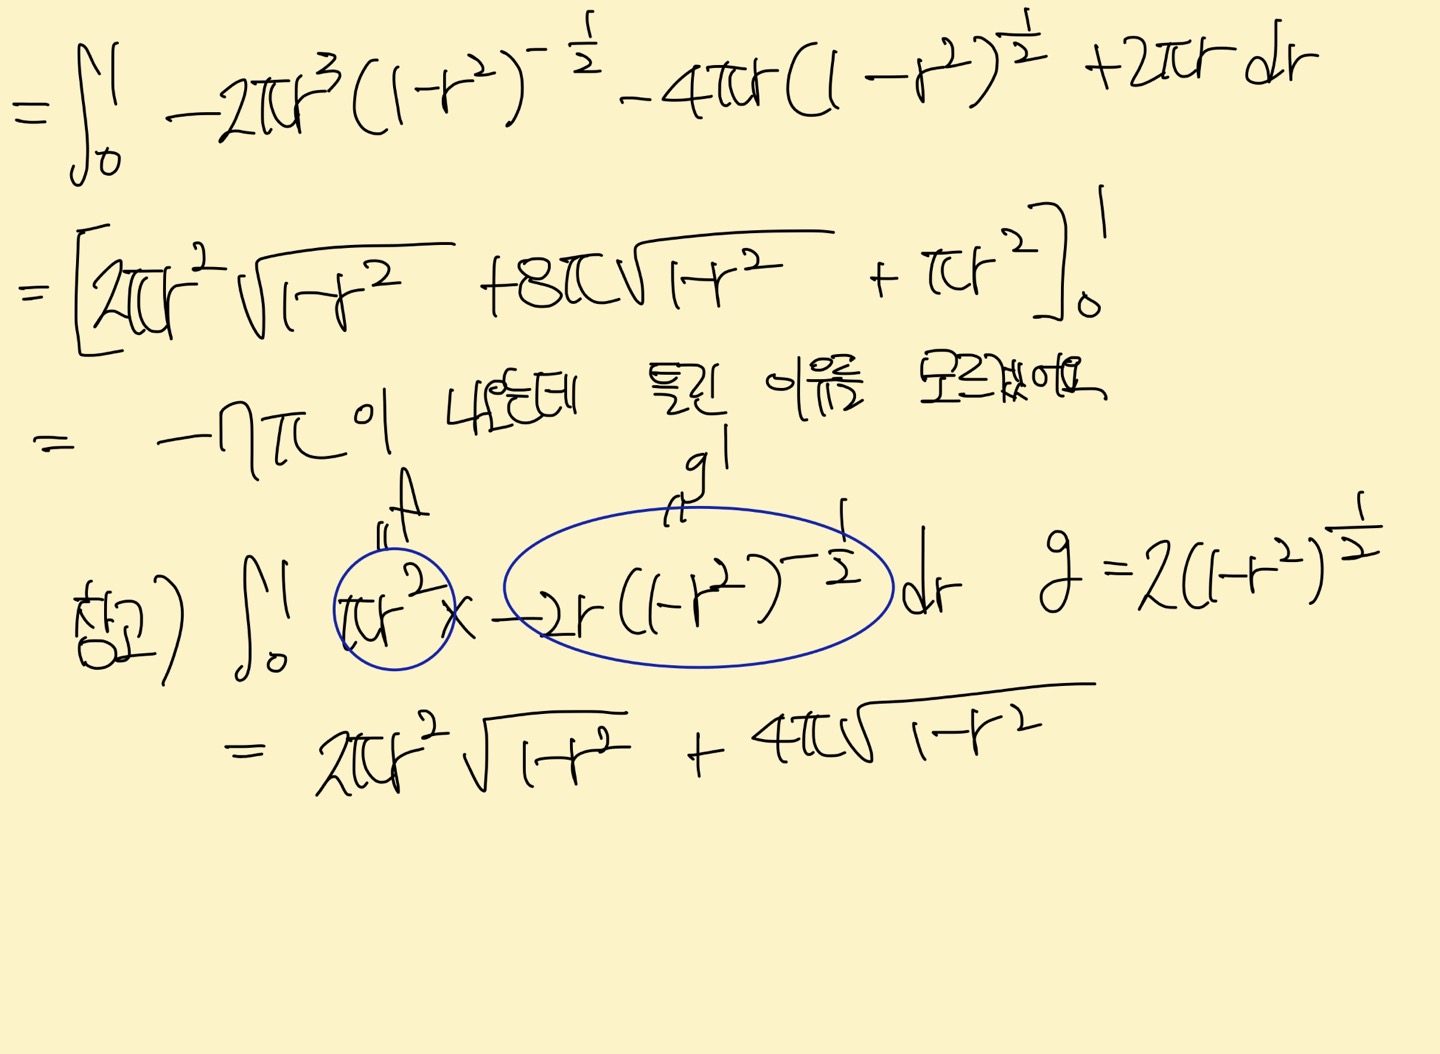 = ∫₀¹ -2πr³(1-r²)^{-1/2} - 4πr(1-r²)^{1/2} + 2πr dr
= [2πr²√(1-r²) + 8π√(1-r²) + πr²]₀¹
= -7π 이 나왔는데 틀린 이유를 모르겠어요
f g'
참고) ∫₀¹ πr² × -2r(1-r²)^{-1/2} dr g = 2(1-r²)^{1/2}
= 2πr²√(1-r²) + 4π√(1-r²)